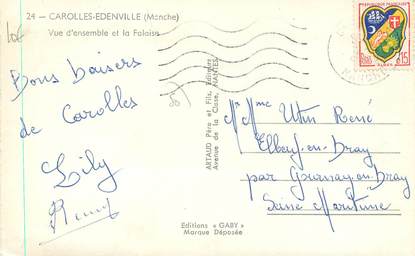 24 - CAROLLES-EDENVILLE (Manche)
Vue d'ensemble et la Falaise
Bons baisers
de Carolles
Lily
ARTAUD Père et Fils, Éditeurs
Avenue de la Close, NANTES
Editions "GABY"
Marque Déposée
REPUBLIQUE FRANÇAISE
0,15
Mr Mme René
Elbeuf-en-Bray
par Gournay-en-Bray
Seine Maritime